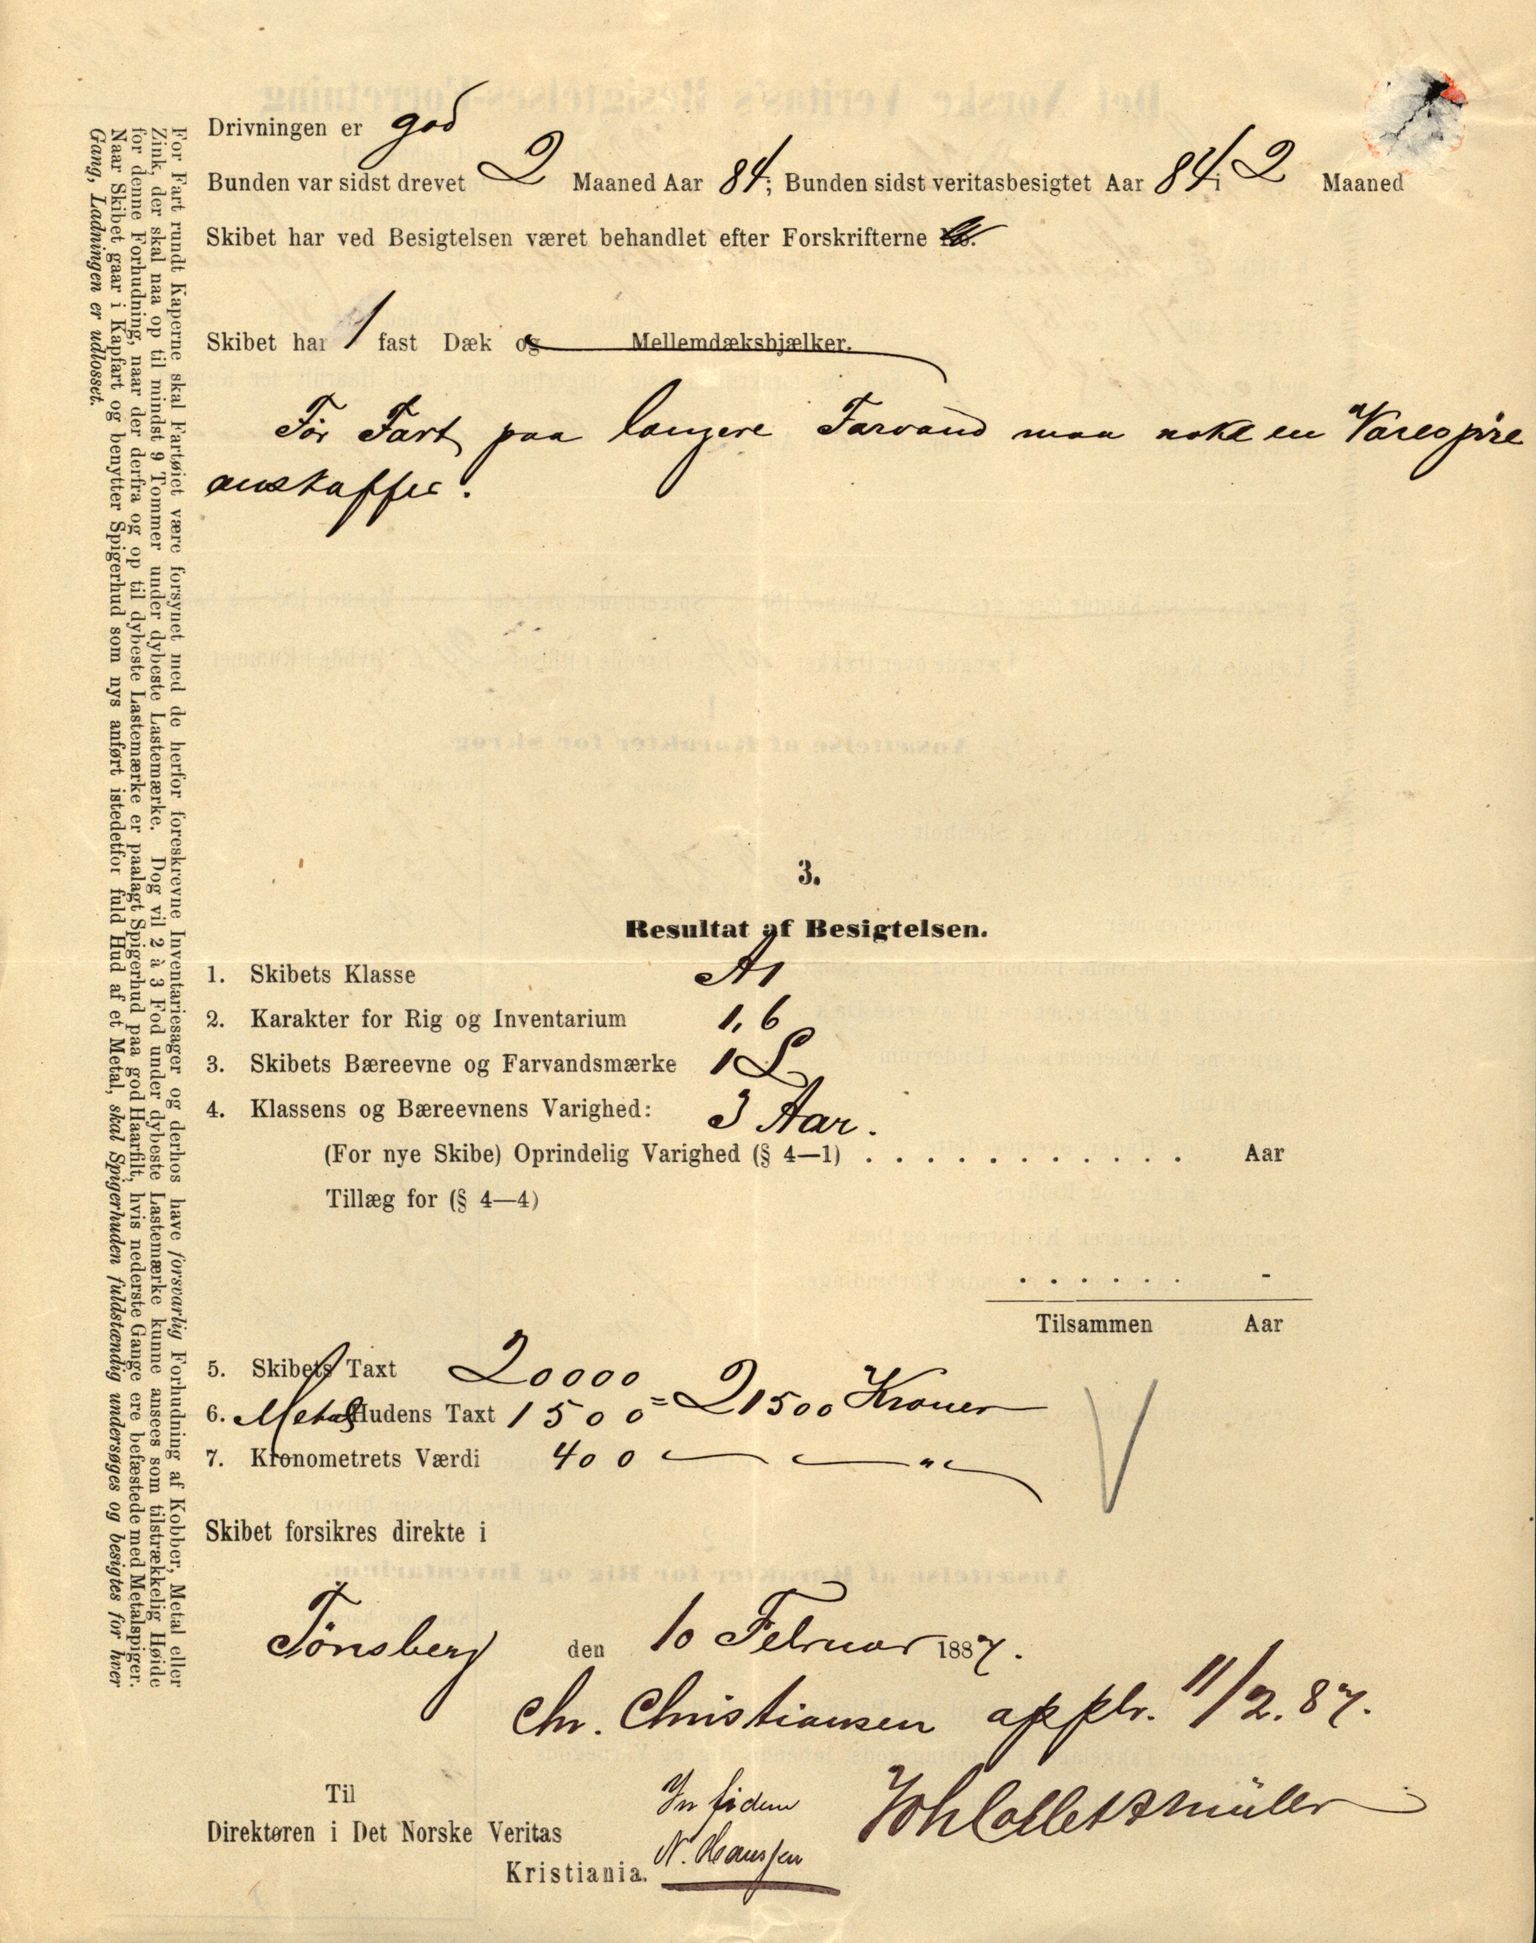 Drivningen er god
Bunden var sidst drevet 2 Maaned Aar 84; Bunden sidst veritasbesigtet Aar 84 i 2 Maaned
Skibet har ved Besigtelsen været behandlet efter Forskrifterne
Skibet har 1 fast Dæk og Mellemdæksbjælker.
För Fart paa længere Farvand maa nok en Varespire
anskaffes.
3.
Resultat af Besigtelsen.
1. Skibets Klasse A1
2. Karakter for Rig og Inventarium 1,6
3. Skibets Bæreevne og Farvandsmærke 1 L
4. Klassens og Bæreevnens Varighed: 3 Aar.
(For nye Skibe) Oprindelig Varighed (§ 4—1) . . . . . . . . . . . . Aar
Tillæg for (§ 4—4)
. . . . . . -
Tilsammen Aar
5. Skibets Taxt 20000
6. Metal Hudens Taxt 1500 = 21500 Kroner
7. Kronometrets Værdi 400 — — " —
Skibet forsikres direkte i
Tönsberg den 10 Februar 1887.
Chr. Christiansen appbr. 11/2.87.
Til In fidem Joh Collett Müller
Direktøren i Det Norske Veritas
Kristiania. N. Hanssen
For Fart rundt Kaperne skal Fartøiet være forsynet med de herfor foreskrevne Inventariesager og derhos have forsvarlig Forhudning af Kobber, Metal eller
Zink, der skal naa op til mindst 9 Tommer under dybeste Lastemærke. Dog vil 2 à 3 Fod under dybeste Lastemærke kunne ansees som tilstrækkelig Høide
for denne Forhudning, naar der derfra og op til dybeste Lastemærke er paalagt Spigerhud paa god Haarfilt, hvis nederste Gange ere befæstede med Metalspiger.
Naar Skibet gaar i Kapfart og benytter Spigerhud som nys anført istedetfor fuld Hud af et Metal, skal Spigerhuden fuldstændig undersøges og besigtes for hver
Gang, Ladningen er udlosset.